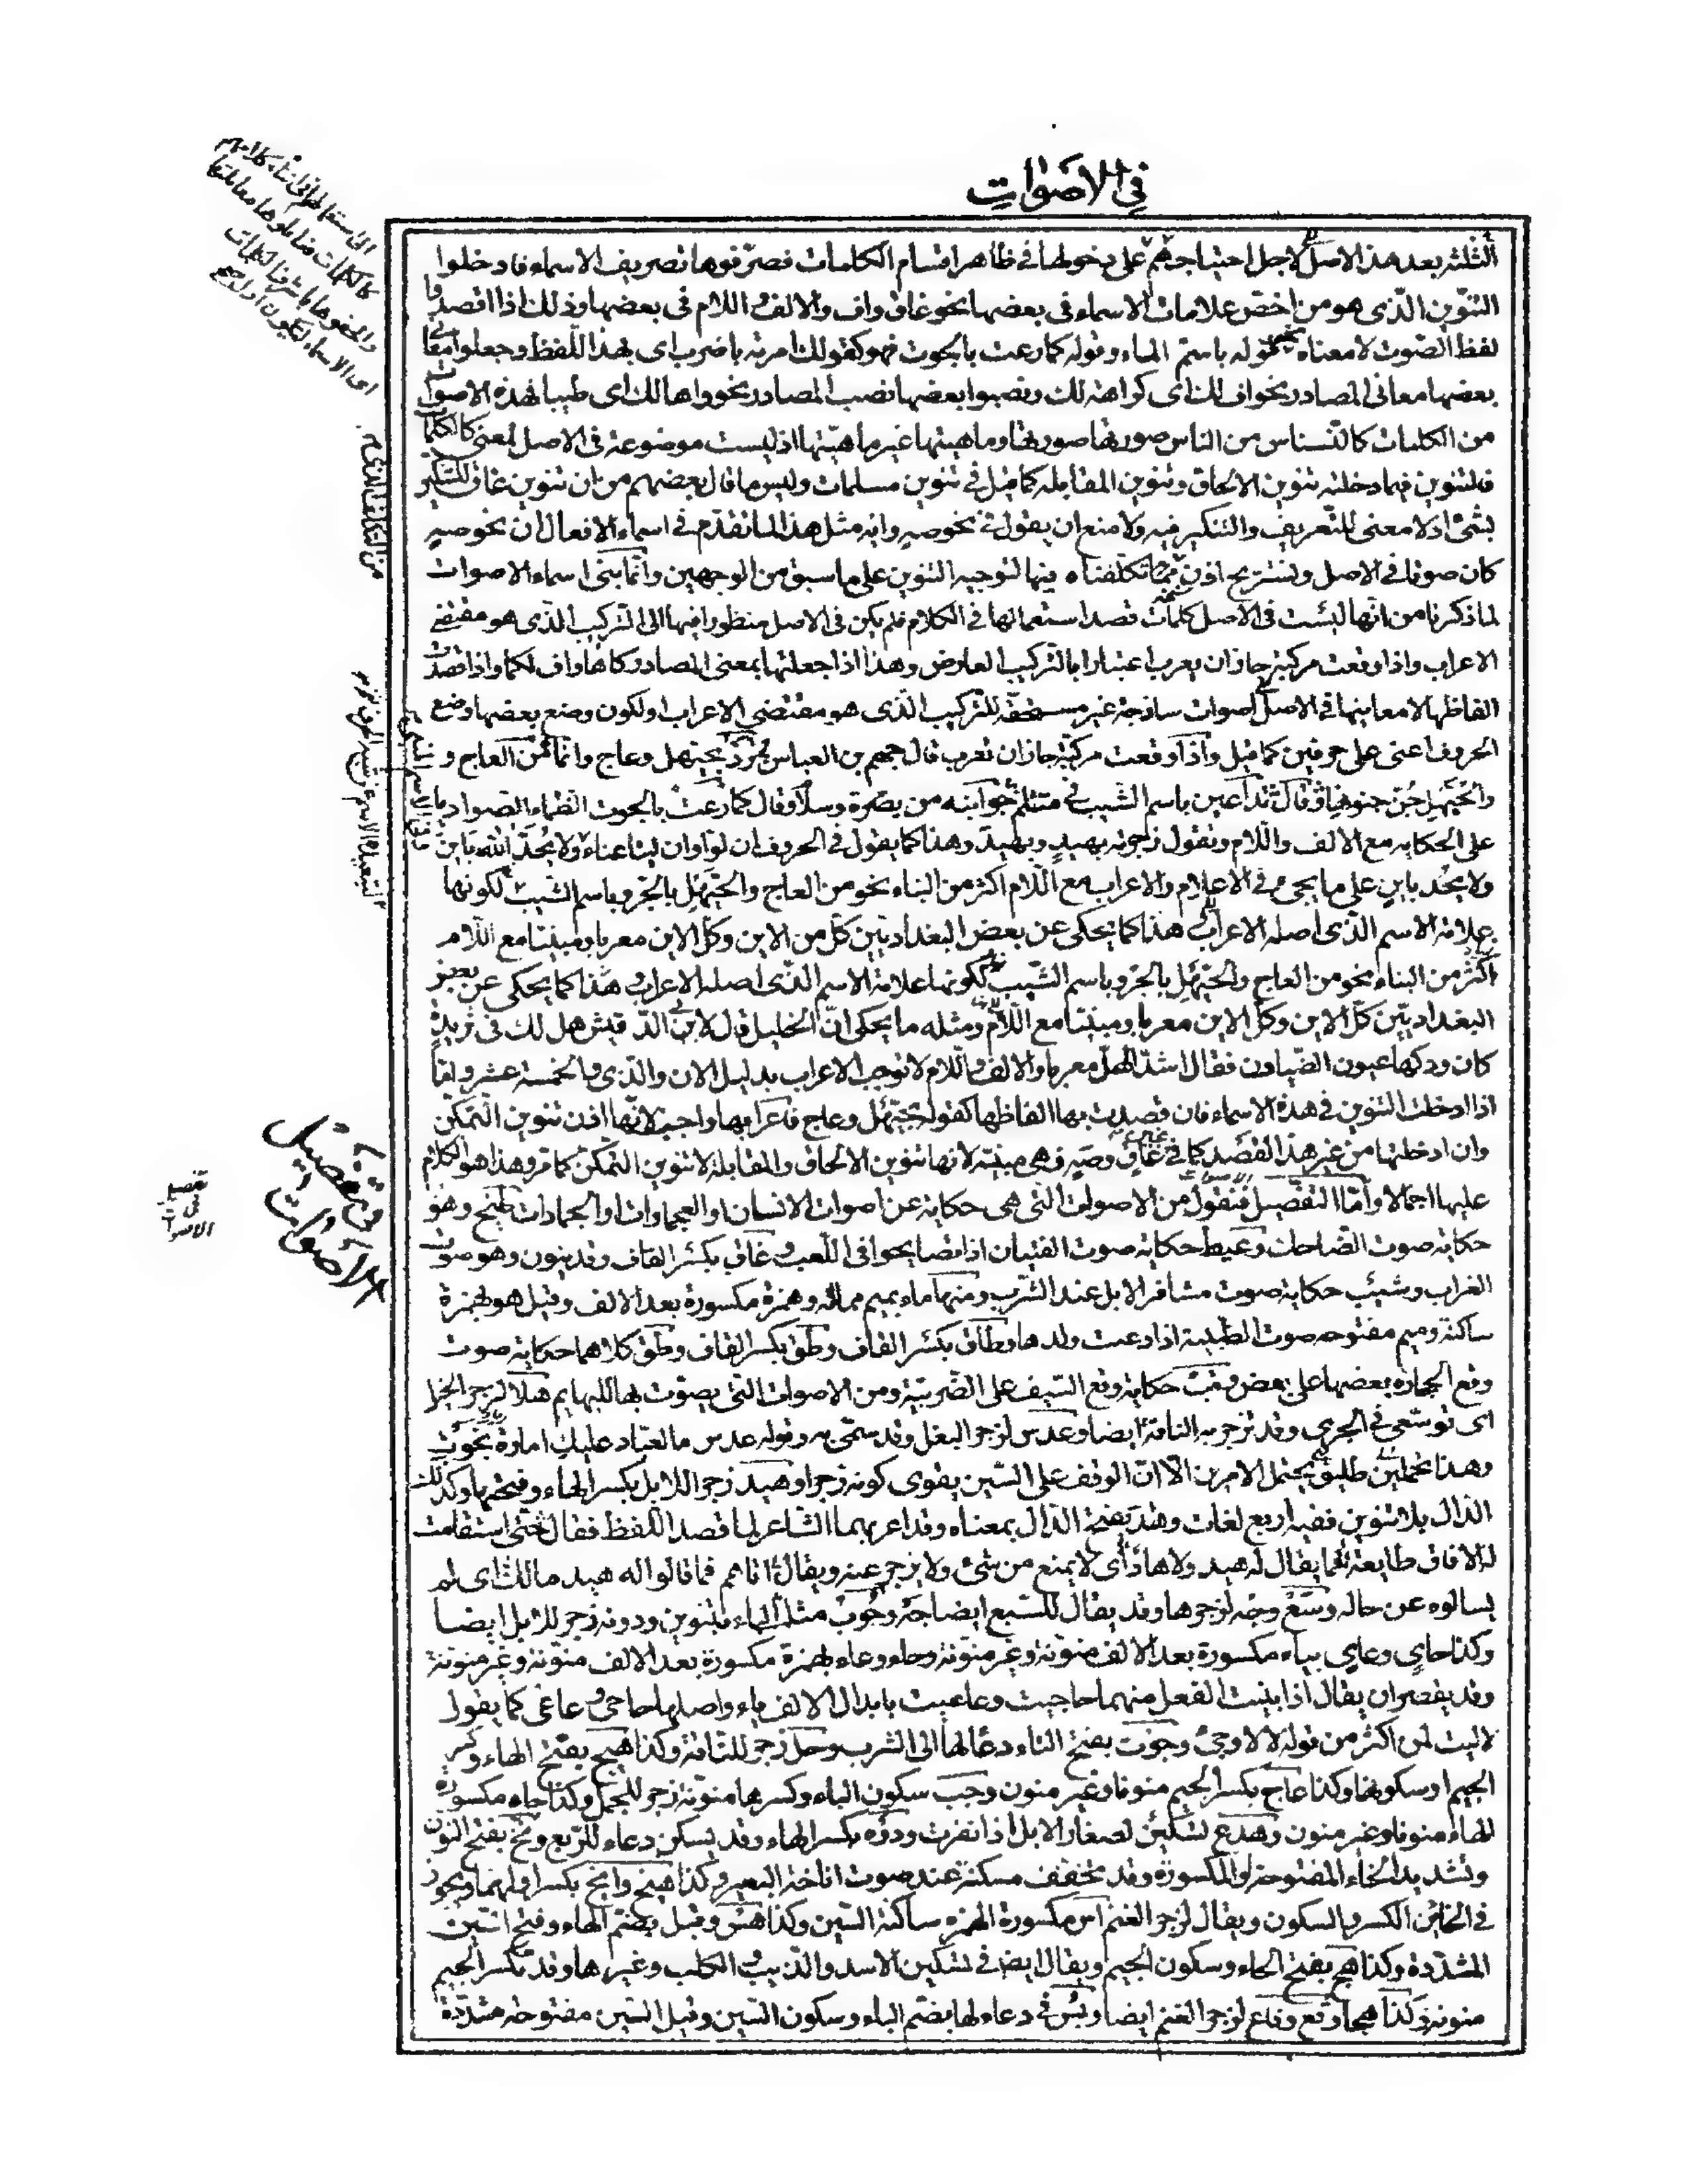 في الاصوات
الثلثة بعد هذا الاصل لاجل احتياجهم على دخولها في ظاهر اقسام الكلمات فصرّفوها تصريف الاسماء فادخلوا
التنوين الذى هو من اخصّ علامات الاسماء فى بعضها نحو غاق واف والالف واللام فى بعضها وذلك اذا قصدوا
لفظ الصّوت لا معناه نحو قوله باسم الماء وقوله كما رعت بالجوت فهو كقولك امرته باضرب اى بهذا اللفظ وجعلوا معانى
بعضها معانى المصادر نحو اف لك اى كراهة لك ونصبوا بعضها نصب المصادر نحو واها لك اى طيبا لهذه الاصوات
من الكلمات كالنّسناس من الناس صورتها صورتها وماهيتها غير ماهيّتها اذ ليست موضوعة فى الاصل لمعنى كالكلمات
فالتنوين فيما دخلته تنوين الالحاق وتنوين المقابلة كما قيل في تنوين مسلمات وليس ما قال بعضهم من ان تنوين غاق للتنكير
بشئ اذ لا معنى للتّعريف والتنكير فيه ولا منع ان يقول في نحو صهٍ وايه مثل هذا لما تقدّم فى اسماء الافعال ان نحو صهٍ
كان صوتا فى الاصل ونستريح اذن ممّا تكلفناه فيها لتوجيه التنوين على ما سبق من الوجهين وانّما بنى اسماء الاصوات
لما ذكرنا من انّها ليست فى الاصل كلمات قصد استعمالها فى الكلام فلم يكن فى الاصل منظورا فيها الى التركيب الذى هو مقتضى
الاعراب واذا وقعت مركبة جاز ان يعرب اعتبارا بالتركيب العارض وهذا اذا جعلتها بمعنى المصادر كاها واف لكما واذا قصدت
الفاظها لا معاينها فى الاصل اصوات ساذجة غير مستحقّة للتركيب الذى هو مقتضى الاعراب او لكون وضع بعضها وضع
الحروف اعنى على حرفين كما قيل واذا وقعت مركبة جاز ان تعرب قال جهم بن العباس بحيّهل وعاج وانما من العاج و
والحيّهل جُنّ جنونها وقال تداعين باسم الشيب في متثلّم جوانبه من بصرة وسلام وقال كما رعت بالجوت الظماء الصواديا
على الحكاية مع الالف واللام وتقول زجرته بهيد وبهيد وهذا كما يقول فى الحروف ان لوّا وان ليتا عناء ولا يحدّ الله باين
ولا يحد باين على ما يجئ فى الاعلام والاعراب مع اللام اكثر من البناء نحو من العاج والحيّهل بالجر وباسم الشيب لكونها
علامة الاسم الذى اصله الاعراب هذا كما يحكى عن بعض البغداديين كل من الاين وكل الاين معربا ومبنيا مع اللام
اكثر من البناء نحو من العاج والحيّهل بالجر وباسم الشيب لكونها علامة الاسم الذى اصله الاعراب هذا كما يحكى عن بعض
البغداديّين كل الاين وكل الاين معربا ومبنيا مع اللام ومثله ما يحكى انّ الخليل قال لابى الدّقيش هل لك فى ثريدة
كان ودكها عيون الضّياون فقال اشدّ الهلّ معربا والالف واللام لا توجب الاعراب بدليل الان والذى والخمسة عشر وامّا
اذا ادخلت التنوين فى هذه الاسماء فان قصدت بها الفاظها كقوله بحيّهل وعاج فاعرابها واجب لانّها اذن تنوين التمكن
وان ادخلتها من غير هذا القصد كما فى غاق وصهٍ فهى مبنيّة لانها تنوين الالحاق والمقابلة لا تنوين التمكن كما مرّ وهذا هو الكلام
عليها اجمالا وامّا التفصيل فنقول من الاصوات التى هى حكاية عن اصوات الانسان او العجماوات او الجمادات طيخ وهو
حكاية صوت الضاحك وعيط حكاية صوت الفتيان اذا تصايحوا فى اللعب وغاق بكسر القاف وقد ينون وهو صوت
الغراب وشيب حكاية صوت مشافر الابل عند الشرب ومنها ماء بميم ممالة وهمزة مكسورة بعد الالف وقيل هو بهمزة
ساكنة وميم مفتوحه صوت الظبية اذا دعت ولدها وطاق بكسر القاف وطق بكسر القاف وطق كلاهما حكاية صوت
وقع الحجارة بعضها على بعض وقب حكاية وقع السّيف على الضّريبة ومن الاصوات التى يصوّت بها للبهايم هلا لزجر الخيل
اى توسّعى فى الجرى وقد تزجر به الناقة ايضا وعدس لزجر البغل وقد سمّى به وقوله عدس ما لعبّاد عليك امارة نجوت
وهذا تحملين طليق يحتمل الامرين الا انّ الوقف على السّين يقوى كونه زجرا وهيد زجرا للابل بكسر الهاء وفتحها وكذلك
الدال بلا تنوين ففيه اربع لغات وهند بفتح الدال بمعناه وقد اعربهما الشاعر لما قصد اللفظ فقال حتى استقامت
له الافاق طايعة فما يقال له هيد ولا هاد اى لا يمنع من شئ ولا يزجر عنه ويقال اتاهم فما قالوا له هيد مالك اى لم
يسالوه عن حاله وسع وجه لزجرها وقد يقال للسبع ايضا جه وحوب مثلث الباء بتنوين ودونه زجر للابل ايضا
وكذا حاي وعاي بياء مكسورة بعد الالف منوّنة وغير منوّنة وحاء وعاء بهمزة مكسورة بعد الالف منوّنة وغير منوّنة
وقد يقصران يقال اذا بنيت الفعل منهما حاحيت وعاعيت بابدال الالف ياء واصلهما حاحى وعاعى كما يقول
لاليت لمن اكثر من قوله لا لا وجئ وجوت بفتح التاء دعا لها الى الشرب وحل زجر للناقة وكذا هيج بفتح الهاء وكسر
الجيم او سكونها وكذا عاج بكسر الجيم منونا وغير منون وحب سكون الباء وكسرها منوّنة زجر للجمل وكذا حاه مكسورة
الهاء منونا وغير منون وهدع تسكين لصغار الابل اذا نفرت ودوه بكسر الهاء وقد يسكن دعاء للرّبع ونخّ بفتح النون
وتشديد الخاء المفتوحة او المكسورة وقد تخفف مسكنة عند صوت اناخة البعير وكذا هيخ وايخ بكسر اولهما ويجوز
فى الخائين الكسر والسكون ويقال لزجر الغنم اس مكسورة الهمزة ساكنة السّين وكذا هس وقيل بضم الهاء وفتح السّين
المشدّدة وكذا هج بفتح الهاء وسكون الجيم ويقال ايضا فى تسكين الاسد والذيب والكلب وغيرها وقد تكسر الجيم
منونة وكذا هجا وقع وفاع لزجر الغنم ايضا وبس فى دعاء لها بضم الباء وسكون السّين وقيل السّين مفتوحة مشدّدة
في تفصيل
الأصوات
تفصيل
فى
الاصوات